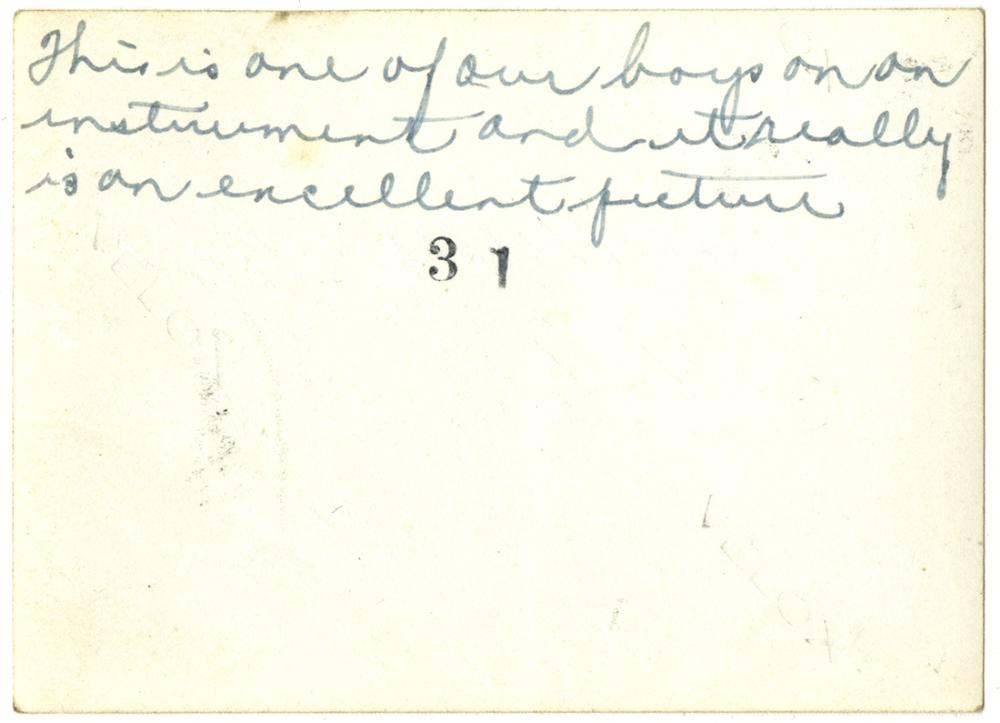 This is one of our boys on an
instrument and it really
is an excellent picture
31